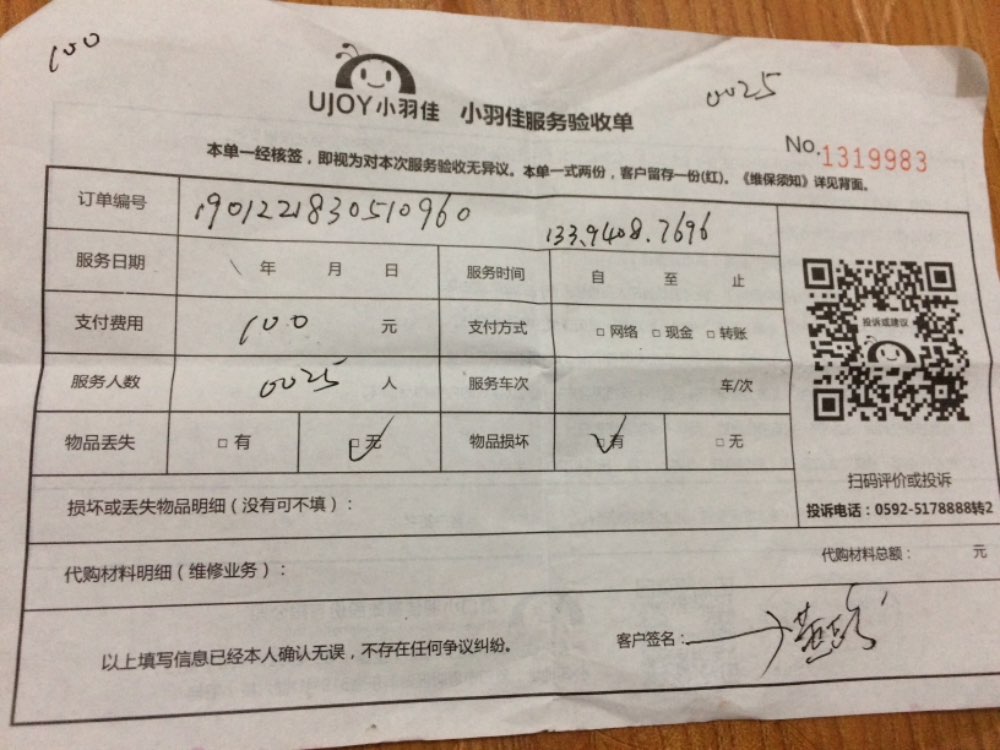 100
0025
UJOY小羽佳 小羽佳服务验收单
No.1319983
本单一经核签，即视为对本次服务验收无异议。本单一式两份，客户留存一份(红)。《维保须知》详见背面。
订单编号 1901221830510960 133.9408.7696
服务日期 年 月 日 服务时间 自 至 止
支付费用 100 元 支付方式 □网络 □现金 □转账
投诉或建议
服务人数 0025 人 服务车次 车/次
物品丢失 □有 □无 物品损坏 □有 □无
扫码评价或投诉
损坏或丢失物品明细（没有可不填）：
投诉电话：0592-5178888转2
代购材料明细（维修业务）： 代购材料总额： 元
以上填写信息已经本人确认无误，不存在任何争议纠纷。 客户签名：